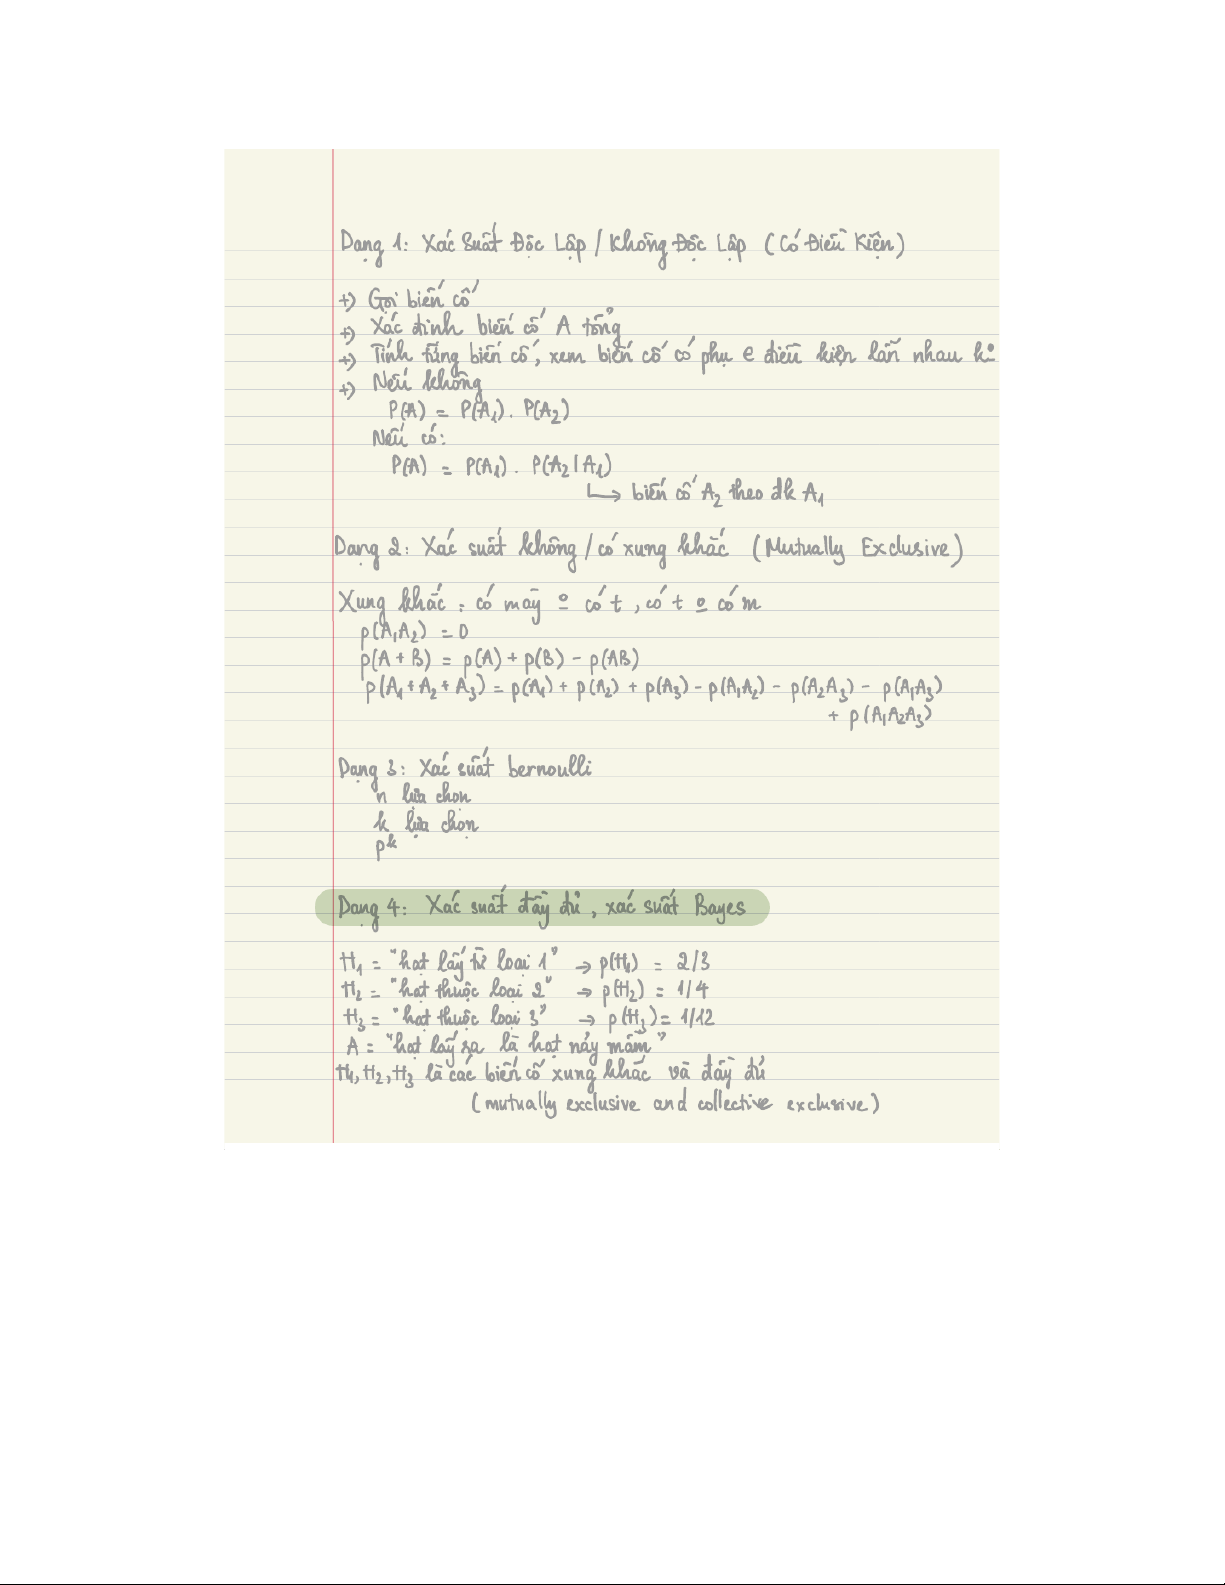 Dạng 1: Xác Suất Độc Lập / Không Độc Lập (Có Điều Kiện)
+) Gọi biến cố
+) Xác định biến cố A tổng
+) Tính từng biến cố, xem biến cố có phụ e điều kiện lẫn nhau k°
+) Nếu không
P(A) = P(A₁) . P(A₂)
Nếu có:
P(A) = P(A₁) . P(A₂ | A₁)
↳ biến cố A₂ theo đk A₁
Dạng 2: Xác suất không / có xung khắc (Mutually Exclusive)
Xung khắc : có máy º có t, có t º có m
p(A₁A₂) = 0
p(A + B) = p(A) + p(B) - p(AB)
p(A₁ + A₂ + A₃) = p(A₁) + p(A₂) + p(A₃) - p(A₁A₂) - p(A₂A₃) - p(A₁A₃)
+ p(A₁A₂A₃)
Dạng 3: Xác suất bernoulli
n lựa chọn
k lựa chọn
pᵏ
Dạng 4: Xác suất đầy đủ, xác suất Bayes
H₁ = "hạt lấy từ loại 1" → p(H₁) = 2/3
H₂ = "hạt thuộc loại 2" → p(H₂) = 1/4
H₃ = "hạt thuộc loại 3" → p(H₃) = 1/12
A = "hạt lấy ra là hạt nảy mầm"
H₁, H₂, H₃ là các biến cố xung khắc và đầy đủ
(mutually exclusive and collective exclusive)